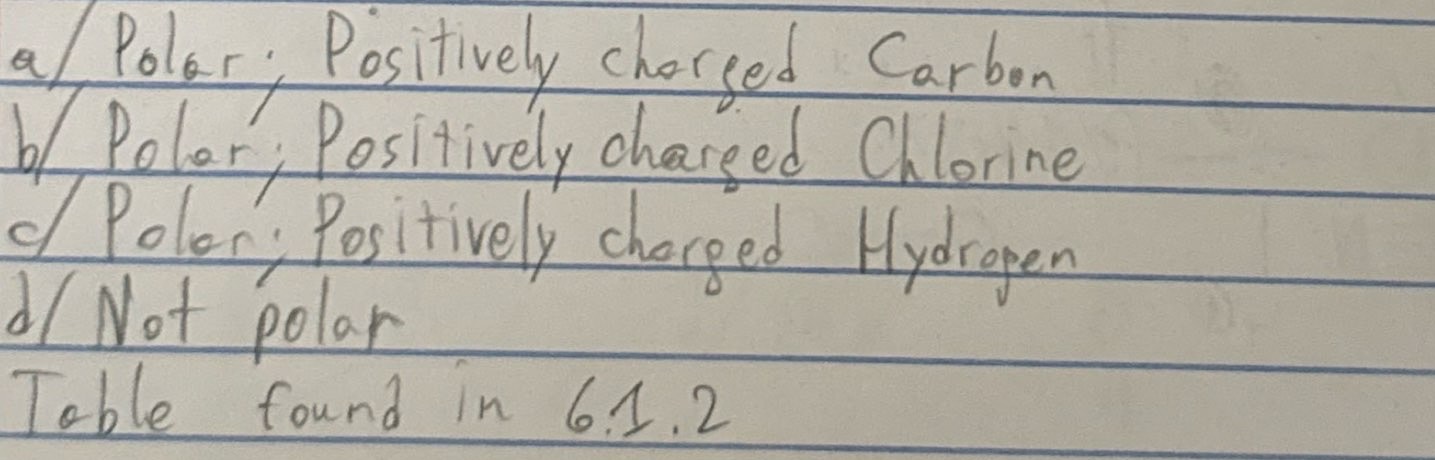 a/ Polar; Positively charged Carbon
b/ Polar; Positively charged Chlorine
c/ Polar; Positively charged Hydrogen
d/ Not polar
Table found in 6.1.2